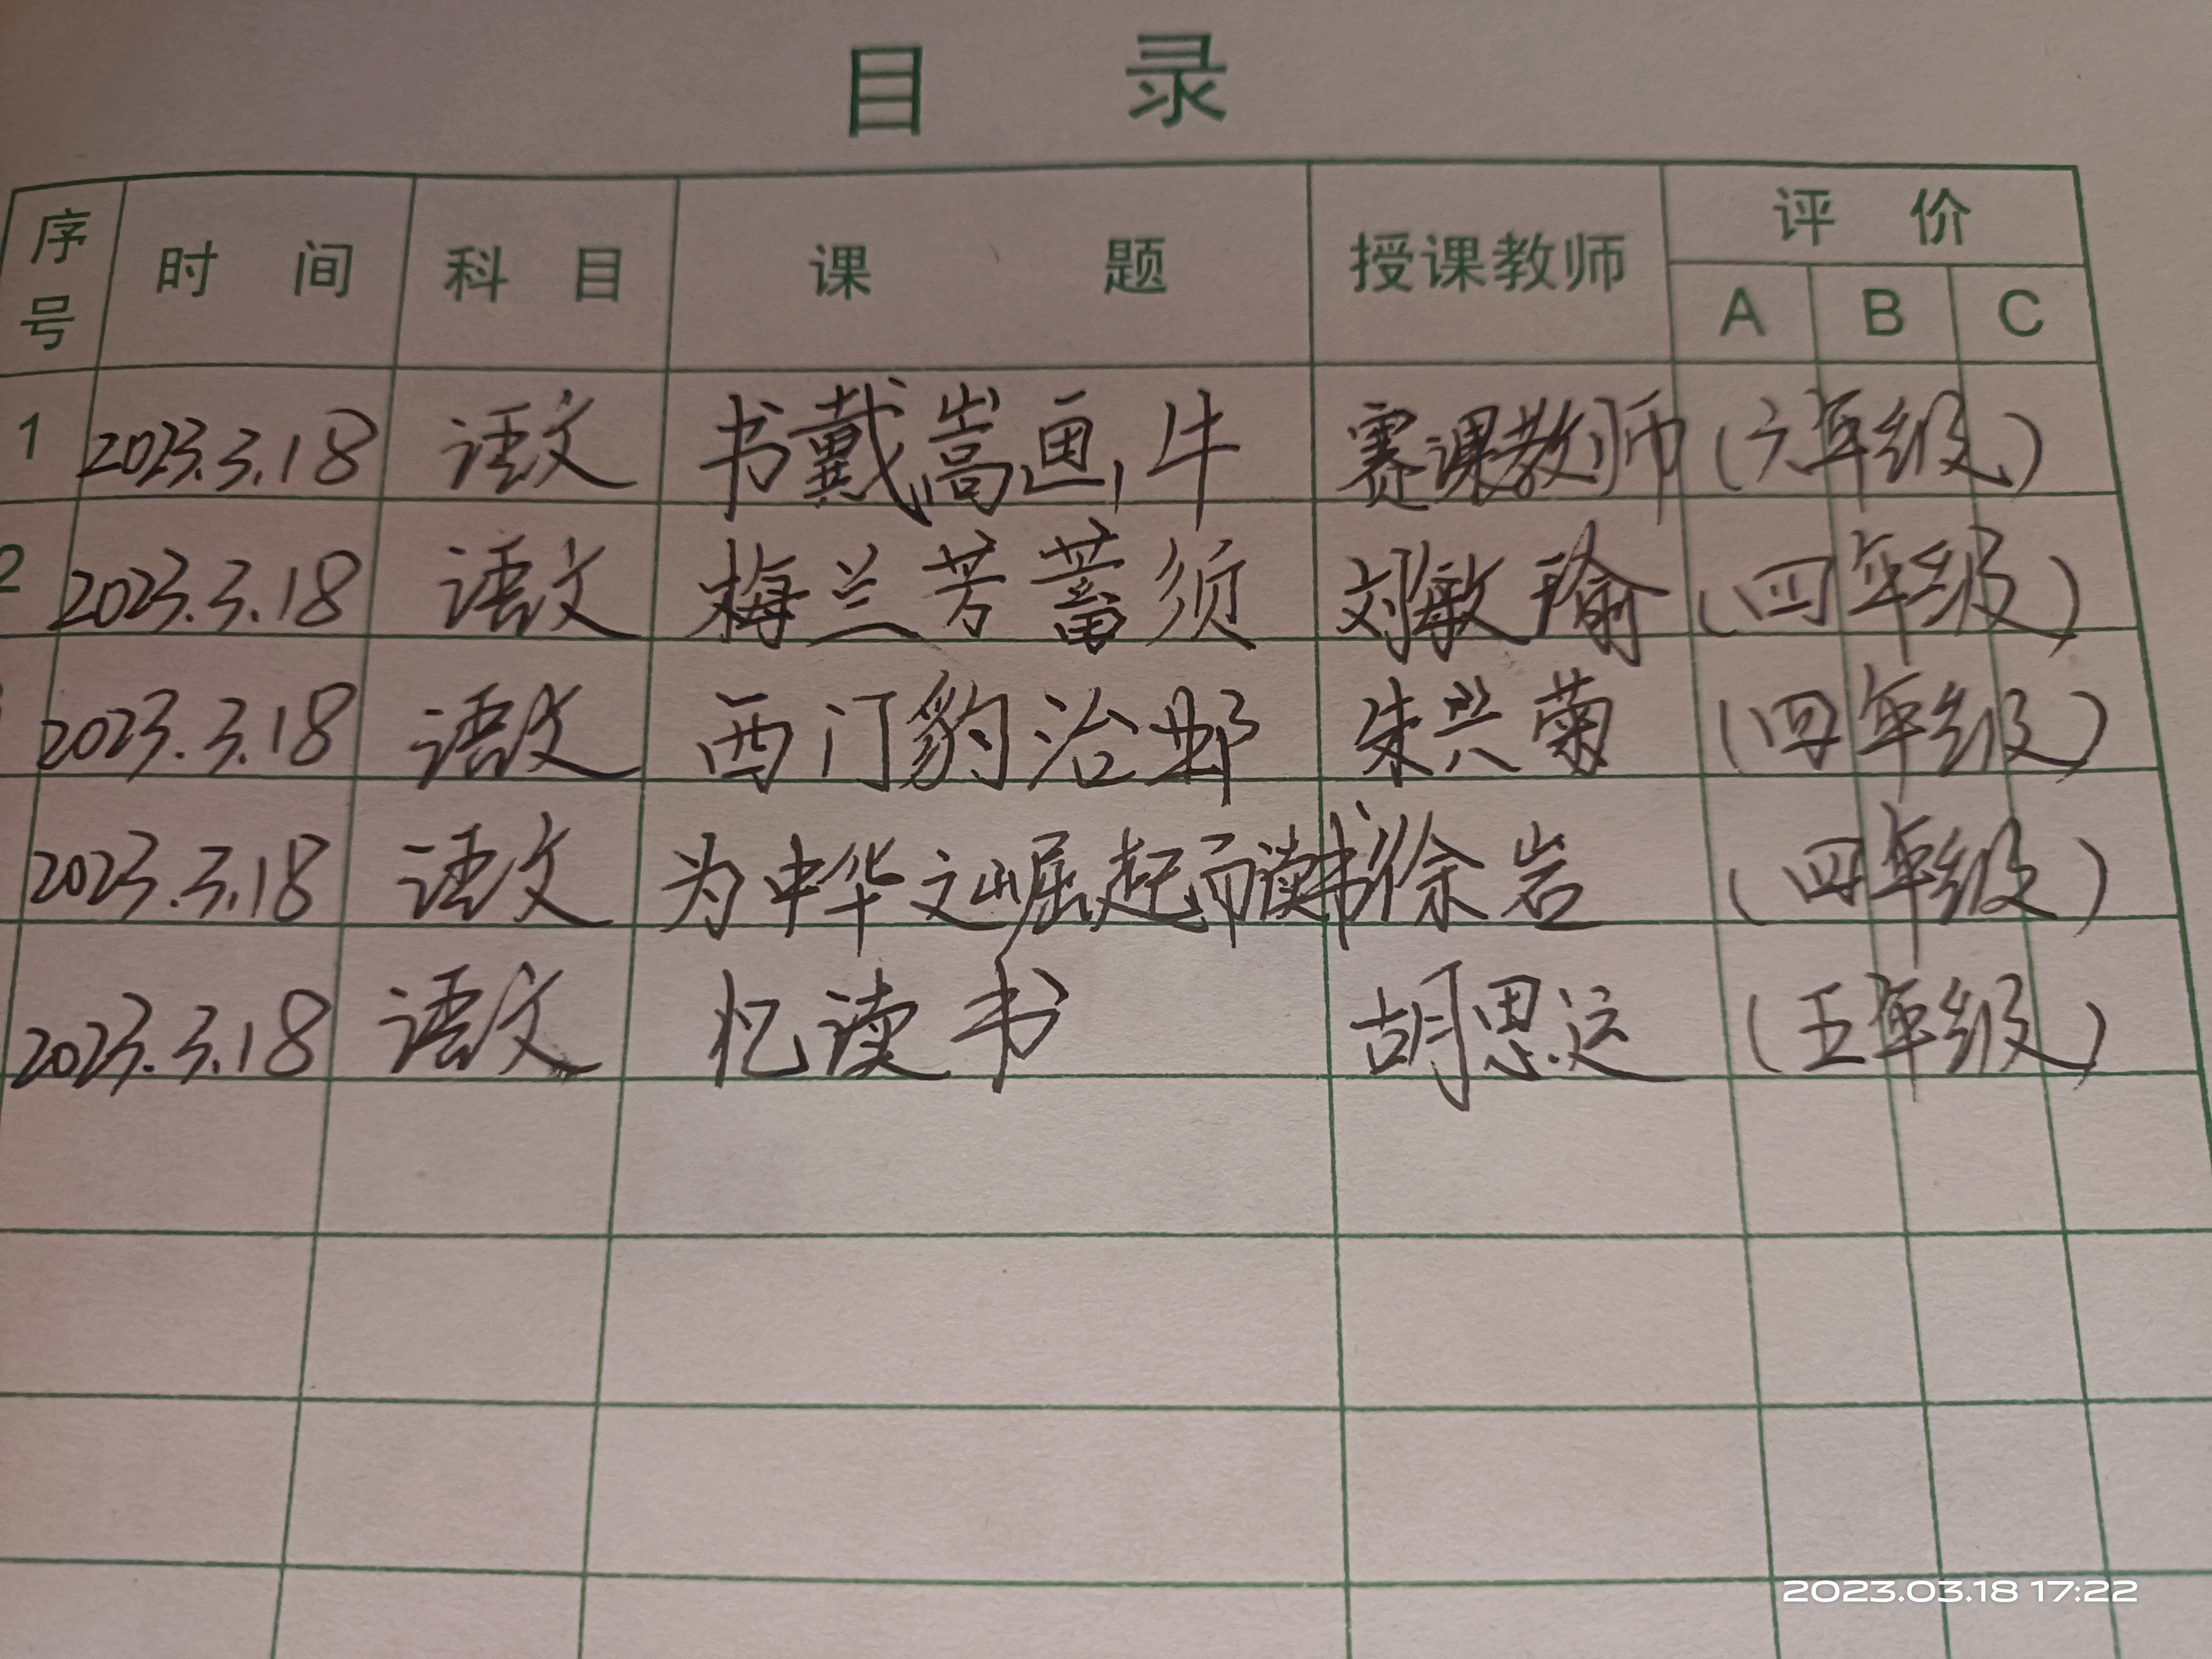 目 录
序号 时 间 科 目 课 题 授课教师 评 价
A B C
1 2023.3.18 语文 书戴嵩画牛 赛课教师 (六年级)
2 2023.3.18 语文 梅兰芳蓄须 刘敏瑜 (四年级)
2023.3.18 语文 西门豹治邺 朱兴菊 (四年级)
2023.3.18 语文 为中华之崛起而读书 徐岩 (四年级)
2023.3.18 语文 忆读书 胡思运 (五年级)
2023.03.18 17:22